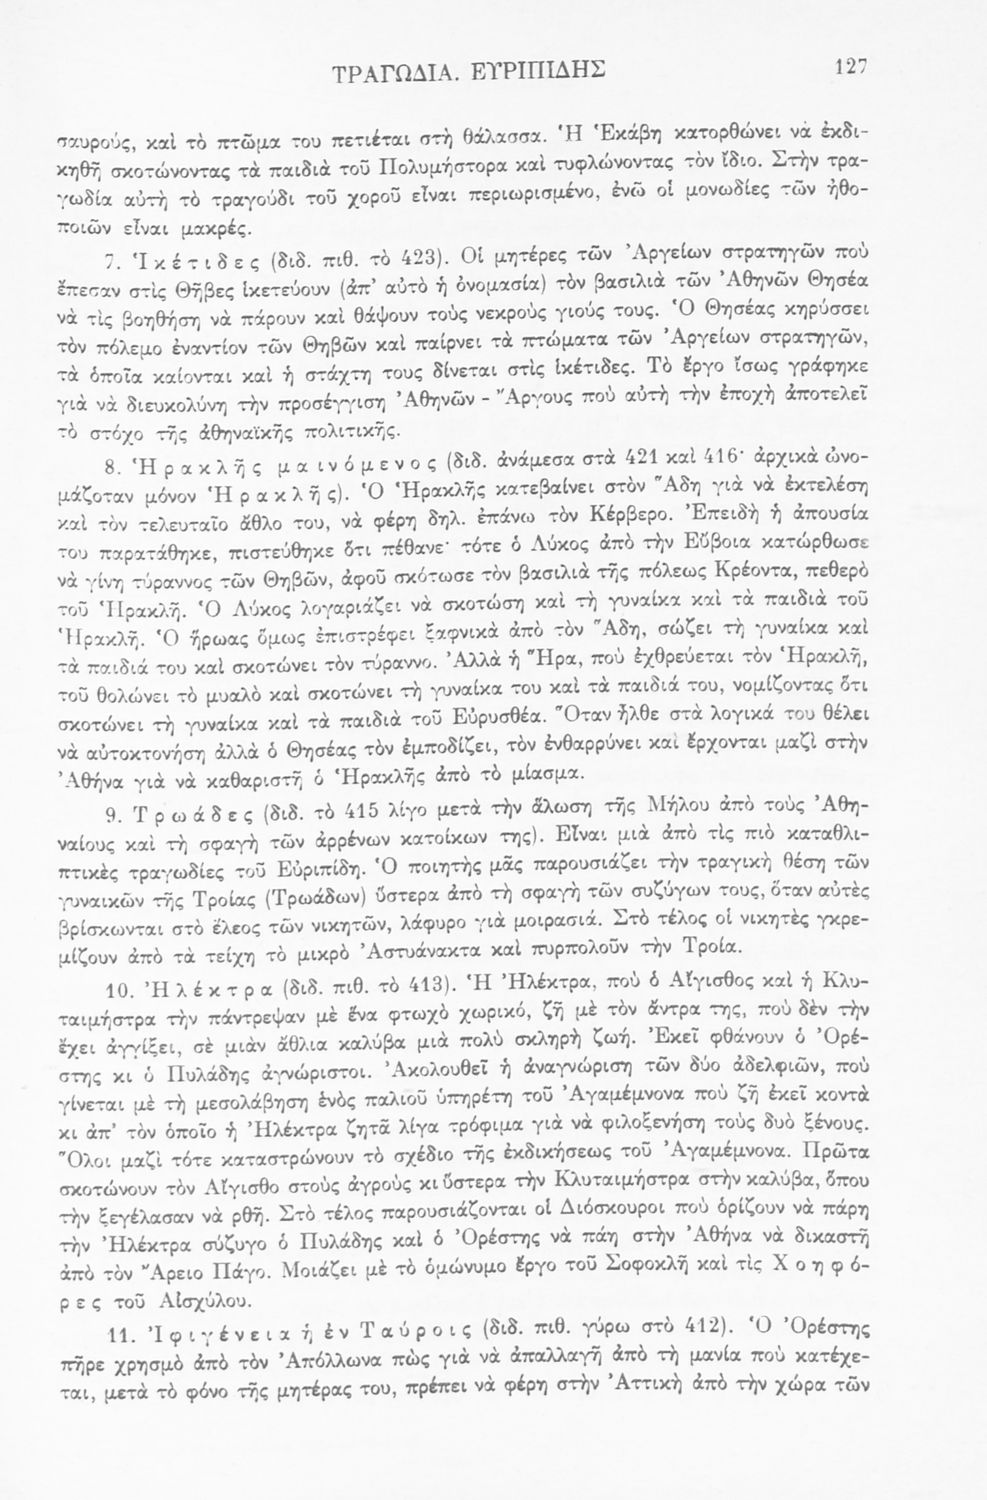 ΤΡΑΓΩΔΙΑ. ΕΥΡΙΠΙΔΗΣ 127
σαυρούς, καὶ τὸ πτῶμα του πετιέται στὴ θάλασσα. Ἡ Ἑκάβη κατορθώνει νὰ ἐκδι-
κηθῆ σκοτώνοντας τὰ παιδιὰ τοῦ Πολυμήστορα καὶ τυφλώνοντας τὸν ἴδιο. Στὴν τρα-
γωδία αὐτὴ τὸ τραγούδι τοῦ χοροῦ εἶναι περιωρισμένο, ἐνῶ οἱ μονωδίες τῶν ἠθο-
ποιῶν εἶναι μακρές.
7. Ἱκέτιδες (διδ. πιθ. τὸ 423). Οἱ μητέρες τῶν Ἀργείων στρατηγῶν ποὺ
ἔπεσαν στὶς Θῆβες ἱκετεύουν (ἀπ' αὐτὸ ἡ ὀνομασία) τὸν βασιλιὰ τῶν Ἀθηνῶν Θησέα
νὰ τὶς βοηθήση νὰ πάρουν καὶ θάψουν τοὺς νεκροὺς γιούς τους. Ὁ Θησέας κηρύσσει
τὸν πόλεμο ἐναντίον τῶν Θηβῶν καὶ παίρνει τὰ πτώματα τῶν Ἀργείων στρατηγῶν,
τὰ ὁποῖα καίονται καὶ ἡ στάχτη τους δίνεται στὶς ἱκέτιδες. Τὸ ἔργο ἴσως γράφηκε
γιὰ νὰ διευκολύνη τὴν προσέγγιση Ἀθηνῶν - Ἄργους ποὺ αὐτὴ τὴν ἐποχὴ ἀποτελεῖ
τὸ στόχο τῆς ἀθηναϊκῆς πολιτικῆς.
8. Ἡρακλῆς μαινόμενος (διδ. ἀνάμεσα στὰ 421 καὶ 416· ἀρχικὰ ὠνο-
μάζοταν μόνον Ἡρακλῆς). Ὁ Ἡρακλῆς κατεβαίνει στὸν Ἅδη γιὰ νὰ ἐκτελέση
καὶ τὸν τελευταῖο ἄθλο του, νὰ φέρη δηλ. ἐπάνω τὸν Κέρβερο. Ἐπειδὴ ἡ ἀπουσία
του παρατάθηκε, πιστεύθηκε ὅτι πέθανε· τότε ὁ Λύκος ἀπὸ τὴν Εὔβοια κατώρθωσε
νὰ γίνη τύραννος τῶν Θηβῶν, ἀφοῦ σκότωσε τὸν βασιλιὰ τῆς πόλεως Κρέοντα, πεθερὸ
τοῦ Ἡρακλῆ. Ὁ Λύκος λογαριάζει νὰ σκοτώση καὶ τὴ γυναίκα καὶ τὰ παιδιὰ τοῦ
Ἡρακλῆ. Ὁ ἥρωας ὅμως ἐπιστρέφει ξαφνικὰ ἀπὸ τὸν Ἅδη, σώζει τὴ γυναίκα καὶ
τὰ παιδιά του καὶ σκοτώνει τὸν τύραννο. Ἀλλὰ ἡ Ἥρα, ποὺ ἐχθρεύεται τὸν Ἡρακλῆ,
τοῦ θολώνει τὸ μυαλὸ καὶ σκοτώνει τὴ γυναίκα του καὶ τὰ παιδιά του, νομίζοντας ὅτι
σκοτώνει τὴ γυναίκα καὶ τὰ παιδιὰ τοῦ Εὐρυσθέα. Ὅταν ἦλθε στὰ λογικά του θέλει
νὰ αὐτοκτονήση ἀλλὰ ὁ Θησέας τὸν ἐμποδίζει, τὸν ἐνθαρρύνει καὶ ἔρχονται μαζὶ στὴν
Ἀθήνα γιὰ νὰ καθαριστῆ ὁ Ἡρακλῆς ἀπὸ τὸ μίασμα.
9. Τρωάδες (διδ. τὸ 415 λίγο μετὰ τὴν ἅλωση τῆς Μήλου ἀπὸ τοὺς Ἀθη-
ναίους καὶ τὴ σφαγὴ τῶν ἀρρένων κατοίκων της). Εἶναι μιὰ ἀπὸ τὶς πιὸ καταθλι-
πτικὲς τραγωδίες τοῦ Εὐριπίδη. Ὁ ποιητὴς μᾶς παρουσιάζει τὴν τραγικὴ θέση τῶν
γυναικῶν τῆς Τροίας (Τρωάδων) ὕστερα ἀπὸ τὴ σφαγὴ τῶν συζύγων τους, ὅταν αὐτὲς
βρίσκωνται στὸ ἔλεος τῶν νικητῶν, λάφυρο γιὰ μοιρασιά. Στὸ τέλος οἱ νικητὲς γκρε-
μίζουν ἀπὸ τὰ τείχη τὸ μικρὸ Ἀστυάνακτα καὶ πυρπολοῦν τὴν Τροία.
10. Ἠλέκτρα (διδ. πιθ. τὸ 413). Ἡ Ἠλέκτρα, ποὺ ὁ Αἴγισθος καὶ ἡ Κλυ-
ταιμήστρα τὴν πάντρεψαν μὲ ἕνα φτωχὸ χωρικό, ζῆ μὲ τὸν ἄντρα της, ποὺ δὲν τὴν
ἔχει ἀγγίξει, σὲ μιὰν ἄθλια καλύβα μιὰ πολὺ σκληρὴ ζωή. Ἐκεῖ φθάνουν ὁ Ὀρέ-
στης κι ὁ Πυλάδης ἀγνώριστοι. Ἀκολουθεῖ ἡ ἀναγνώριση τῶν δύο ἀδελφιῶν, ποὺ
γίνεται μὲ τὴ μεσολάβηση ἑνὸς παλιοῦ ὑπηρέτη τοῦ Ἀγαμέμνονα ποὺ ζῆ ἐκεῖ κοντὰ
κι ἀπ' τὸν ὁποῖο ἡ Ἠλέκτρα ζητᾶ λίγα τρόφιμα γιὰ νὰ φιλοξενήση τοὺς δυὸ ξένους.
Ὅλοι μαζὶ τότε καταστρώνουν τὸ σχέδιο τῆς ἐκδικήσεως τοῦ Ἀγαμέμνονα. Πρῶτα
σκοτώνουν τὸν Αἴγισθο στοὺς ἀγροὺς κι ὕστερα τὴν Κλυταιμήστρα στὴν καλύβα, ὅπου
τὴν ξεγέλασαν νὰ ρθῆ. Στὸ τέλος παρουσιάζονται οἱ Διόσκουροι ποὺ ὁρίζουν νὰ πάρη
τὴν Ἠλέκτρα σύζυγο ὁ Πυλάδης καὶ ὁ Ὀρέστης νὰ πάη στὴν Ἀθήνα νὰ δικαστῆ
ἀπὸ τὸν Ἄρειο Πάγο. Μοιάζει μὲ τὸ ὁμώνυμο ἔργο τοῦ Σοφοκλῆ καὶ τὶς Χοηφό-
ρες τοῦ Αἰσχύλου.
11. Ἰφιγένεια ἡ ἐν Ταύροις (διδ. πιθ. γύρω στὸ 412). Ὁ Ὀρέστης
πῆρε χρησμὸ ἀπὸ τὸν Ἀπόλλωνα πὼς γιὰ νὰ ἀπαλλαγῆ ἀπὸ τὴ μανία ποὺ κατέχε-
ται, μετὰ τὸ φόνο τῆς μητέρας του, πρέπει νὰ φέρη στὴν Ἀττικὴ ἀπὸ τὴν χώρα τῶν